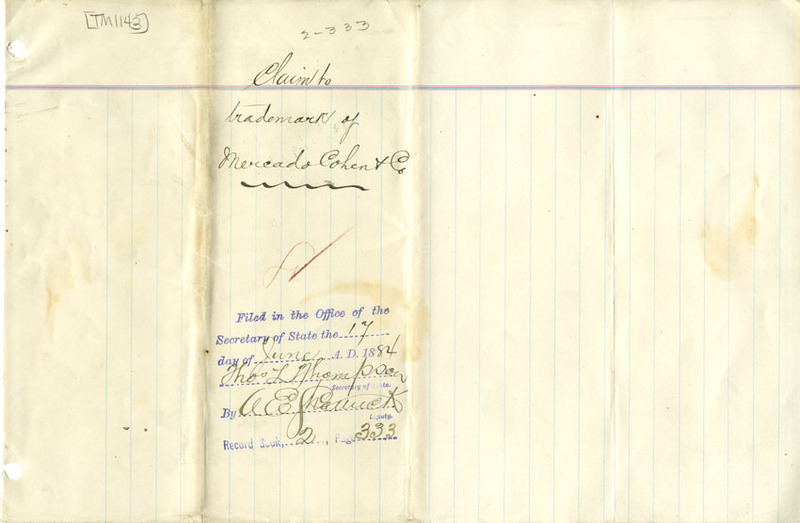 [TM1143]
2-333
Claim to
trademark of
Mercado Cohen & Co
Filed in the Office of the
Secretary of State the 17
day of June A. D. 1884
Thos L Thompson
Secretary of State.
By A E
Deputy.
Record Book, 2, Page 333